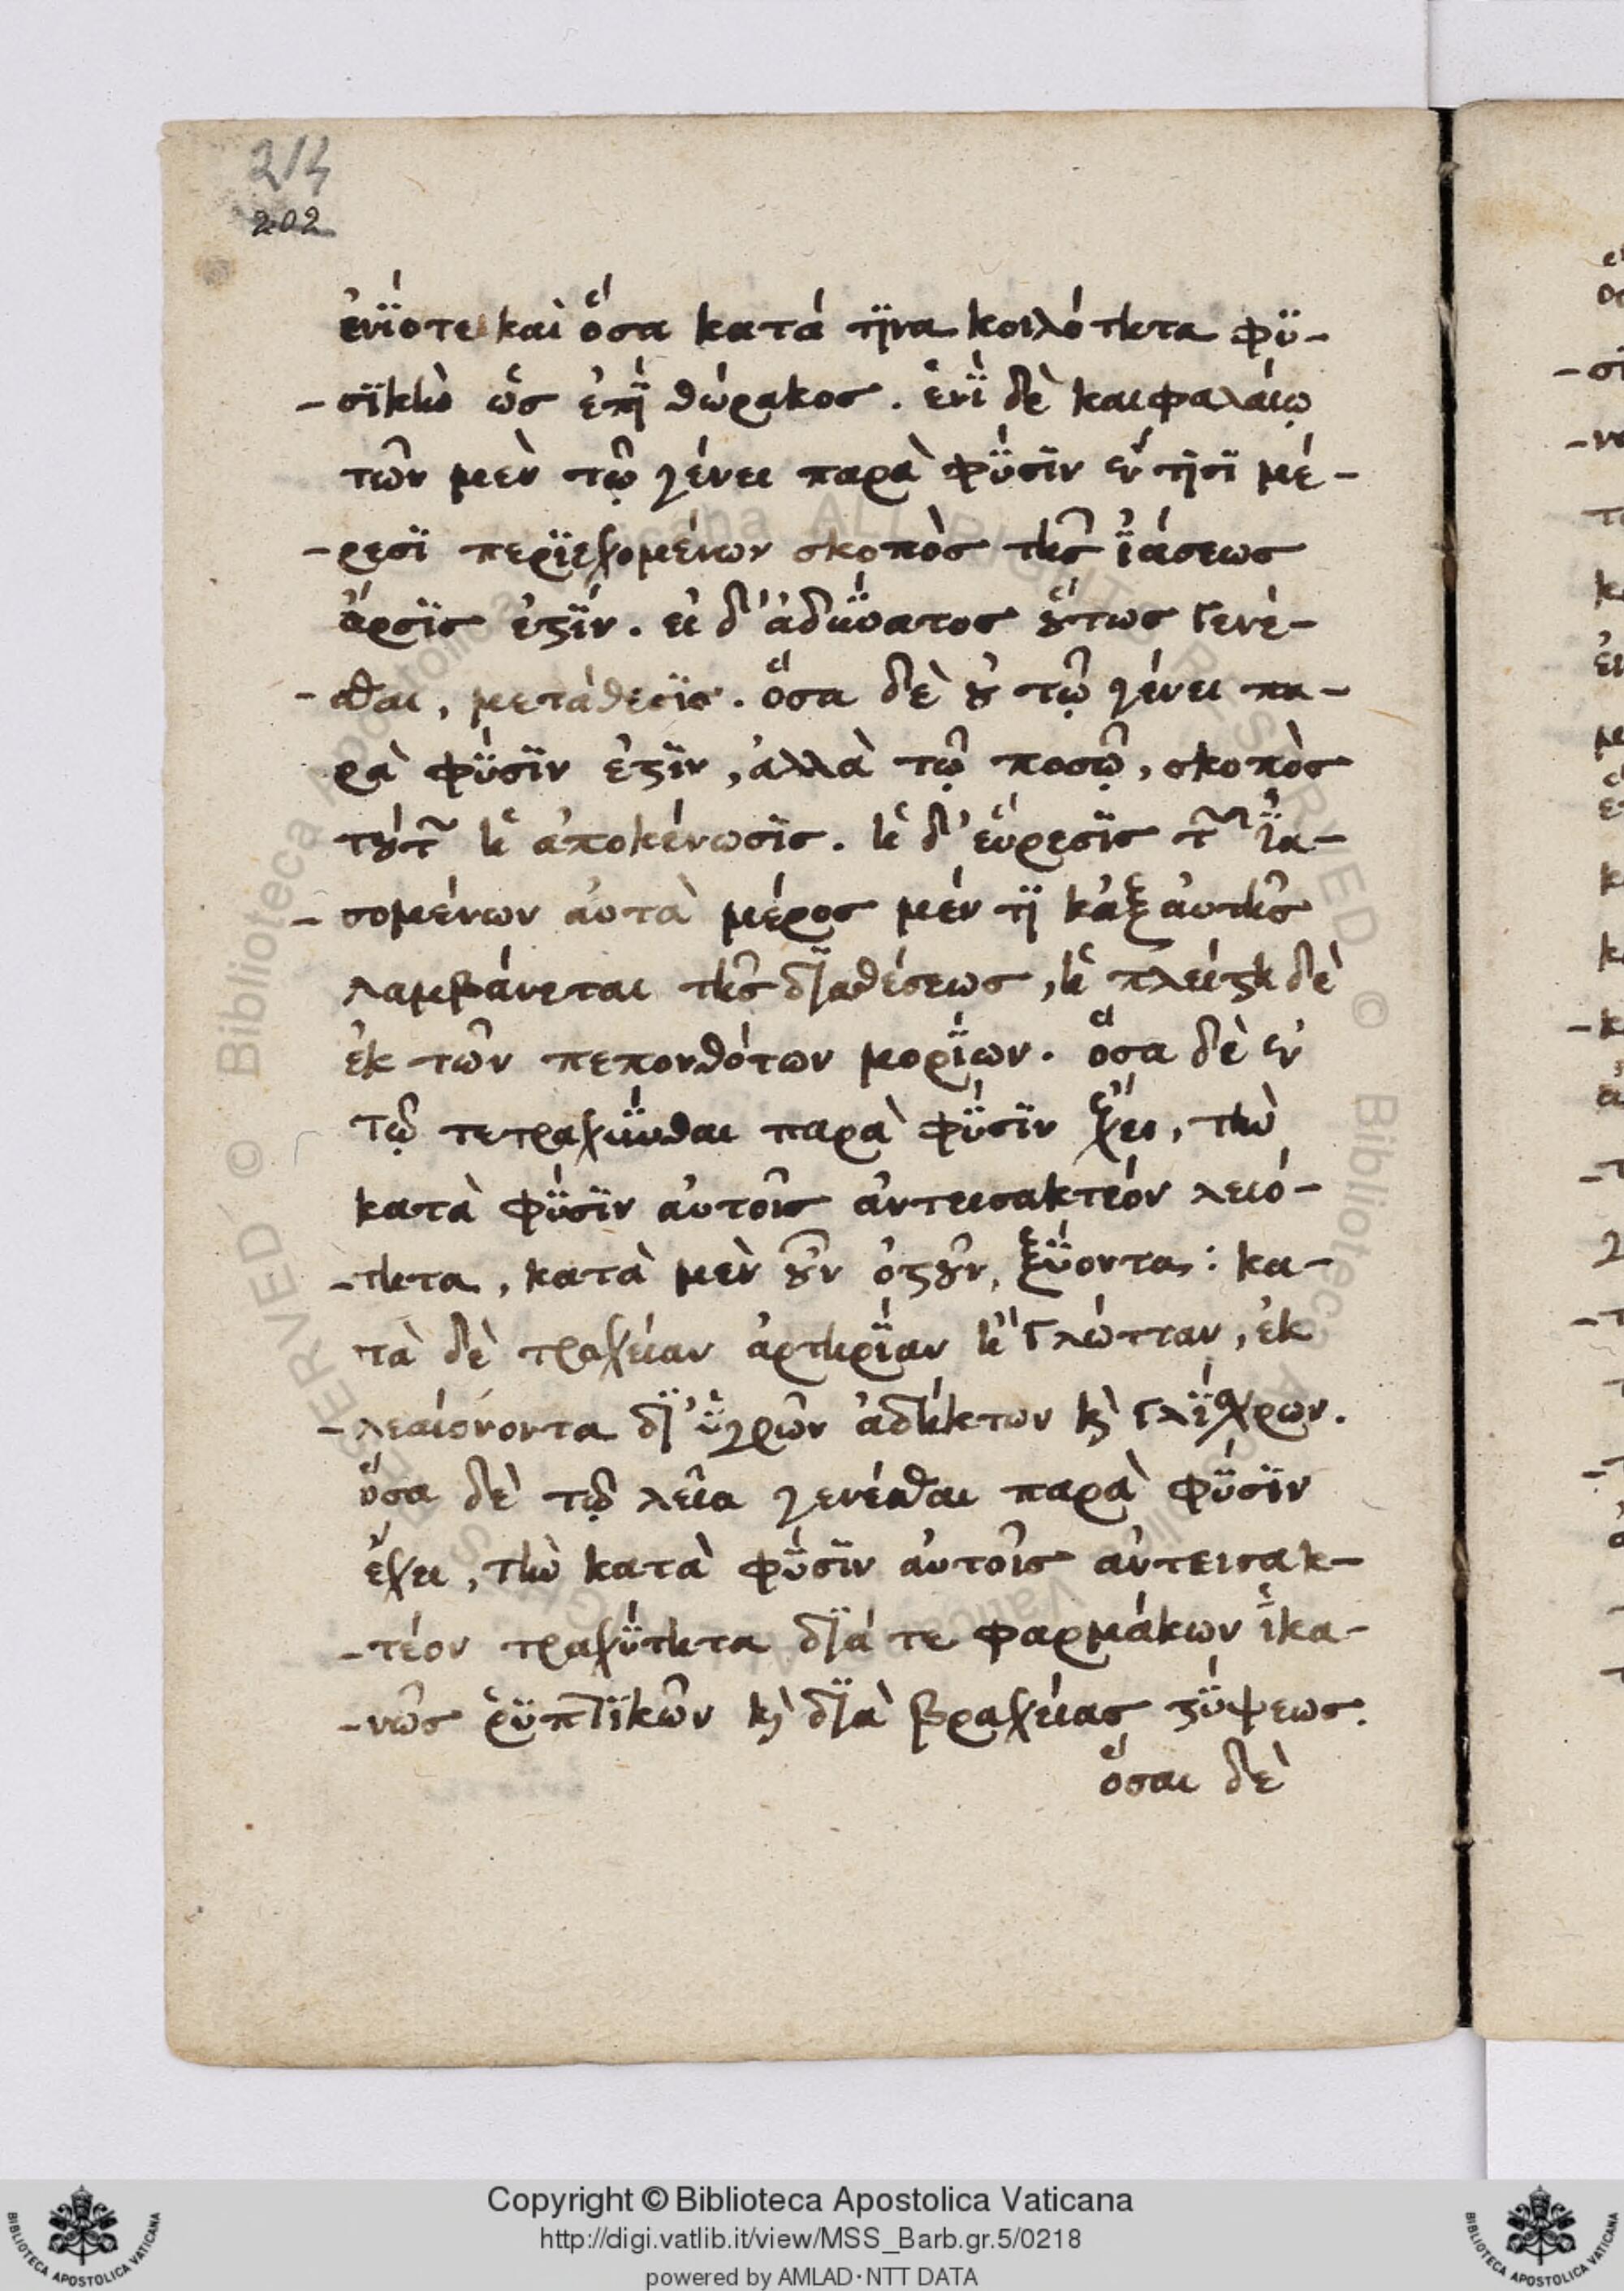 214
202
ἐνΐοτε καὶ ὅσα κατά τϊνα κοιλότητα φϋ-
-σϊκὴν ὡς ἐπῒ θώρακος. ἑνῒ δὲ καιφαλάιῳ
τῶν μὲν τῷ γένει παρὰ φύσϊν ἐν τϊσϊ μέ-
-ρεσϊ περϊεχομένων σκοπὸς τῆς ϊάσεως
ἄρσϊς ἐστϊν. εἰ δ' ἀδύνατος οὕτως γενέ-
-σθαι, μετάθεσϊς. ὅσα δὲ οὐ τῷ γένει πα-
ρὰ φύσϊν ἐστϊν, ἀλλὰ τῷ ποσῷ, σκοπὸς
τούτων ἡ ἀποκένωσϊς. ἡ δ' εὕρεσϊς τῶν ϊα-
-σομένων αὐτὰ μέρος μέν τϊ κᾀξ αὐτῆς
λαμβάνεται τῆς διαθέσεως, ἡ πλείστη δὲ
ἐκ τῶν πεπονθότων μορΐων. ὅσα δὲ ἐν
τῷ τετραχύνθαι παρὰ φύσϊν ἔχει, τὴν
κατὰ φύσϊν αὐτοῖς ἀντεισακτέον λειό-
-τητα, κατὰ μὲν οὖν ὀστοῦν, ξύοντα: κα-
τὰ δὲ τραχεῖαν ἀρτηρΐαν ἢ γλῶτταν, ἐκ
-λεαίνοντα δι' ὑγρῶν ἀδήκτων καὶ γλΐσχρων.
ὅσα δὲ τῷ λεῖα γενέσθαι παρὰ φύσϊν
ἔχει, τὴν κατὰ φύσϊν αὐτοῖς ἀντεισακ-
-τέον τραχύτητα διά τε φαρμάκων ἱκα-
-νῶς ῥϋπτϊκῶν καὶ διὰ βραχείας στύψεως.
ὅσαι δὲ
Copyright © Biblioteca Apostolica Vaticana
http://digi.vatlib.it/view/MSS_Barb.gr.5/0218
powered by AMLAD·NTT DATA